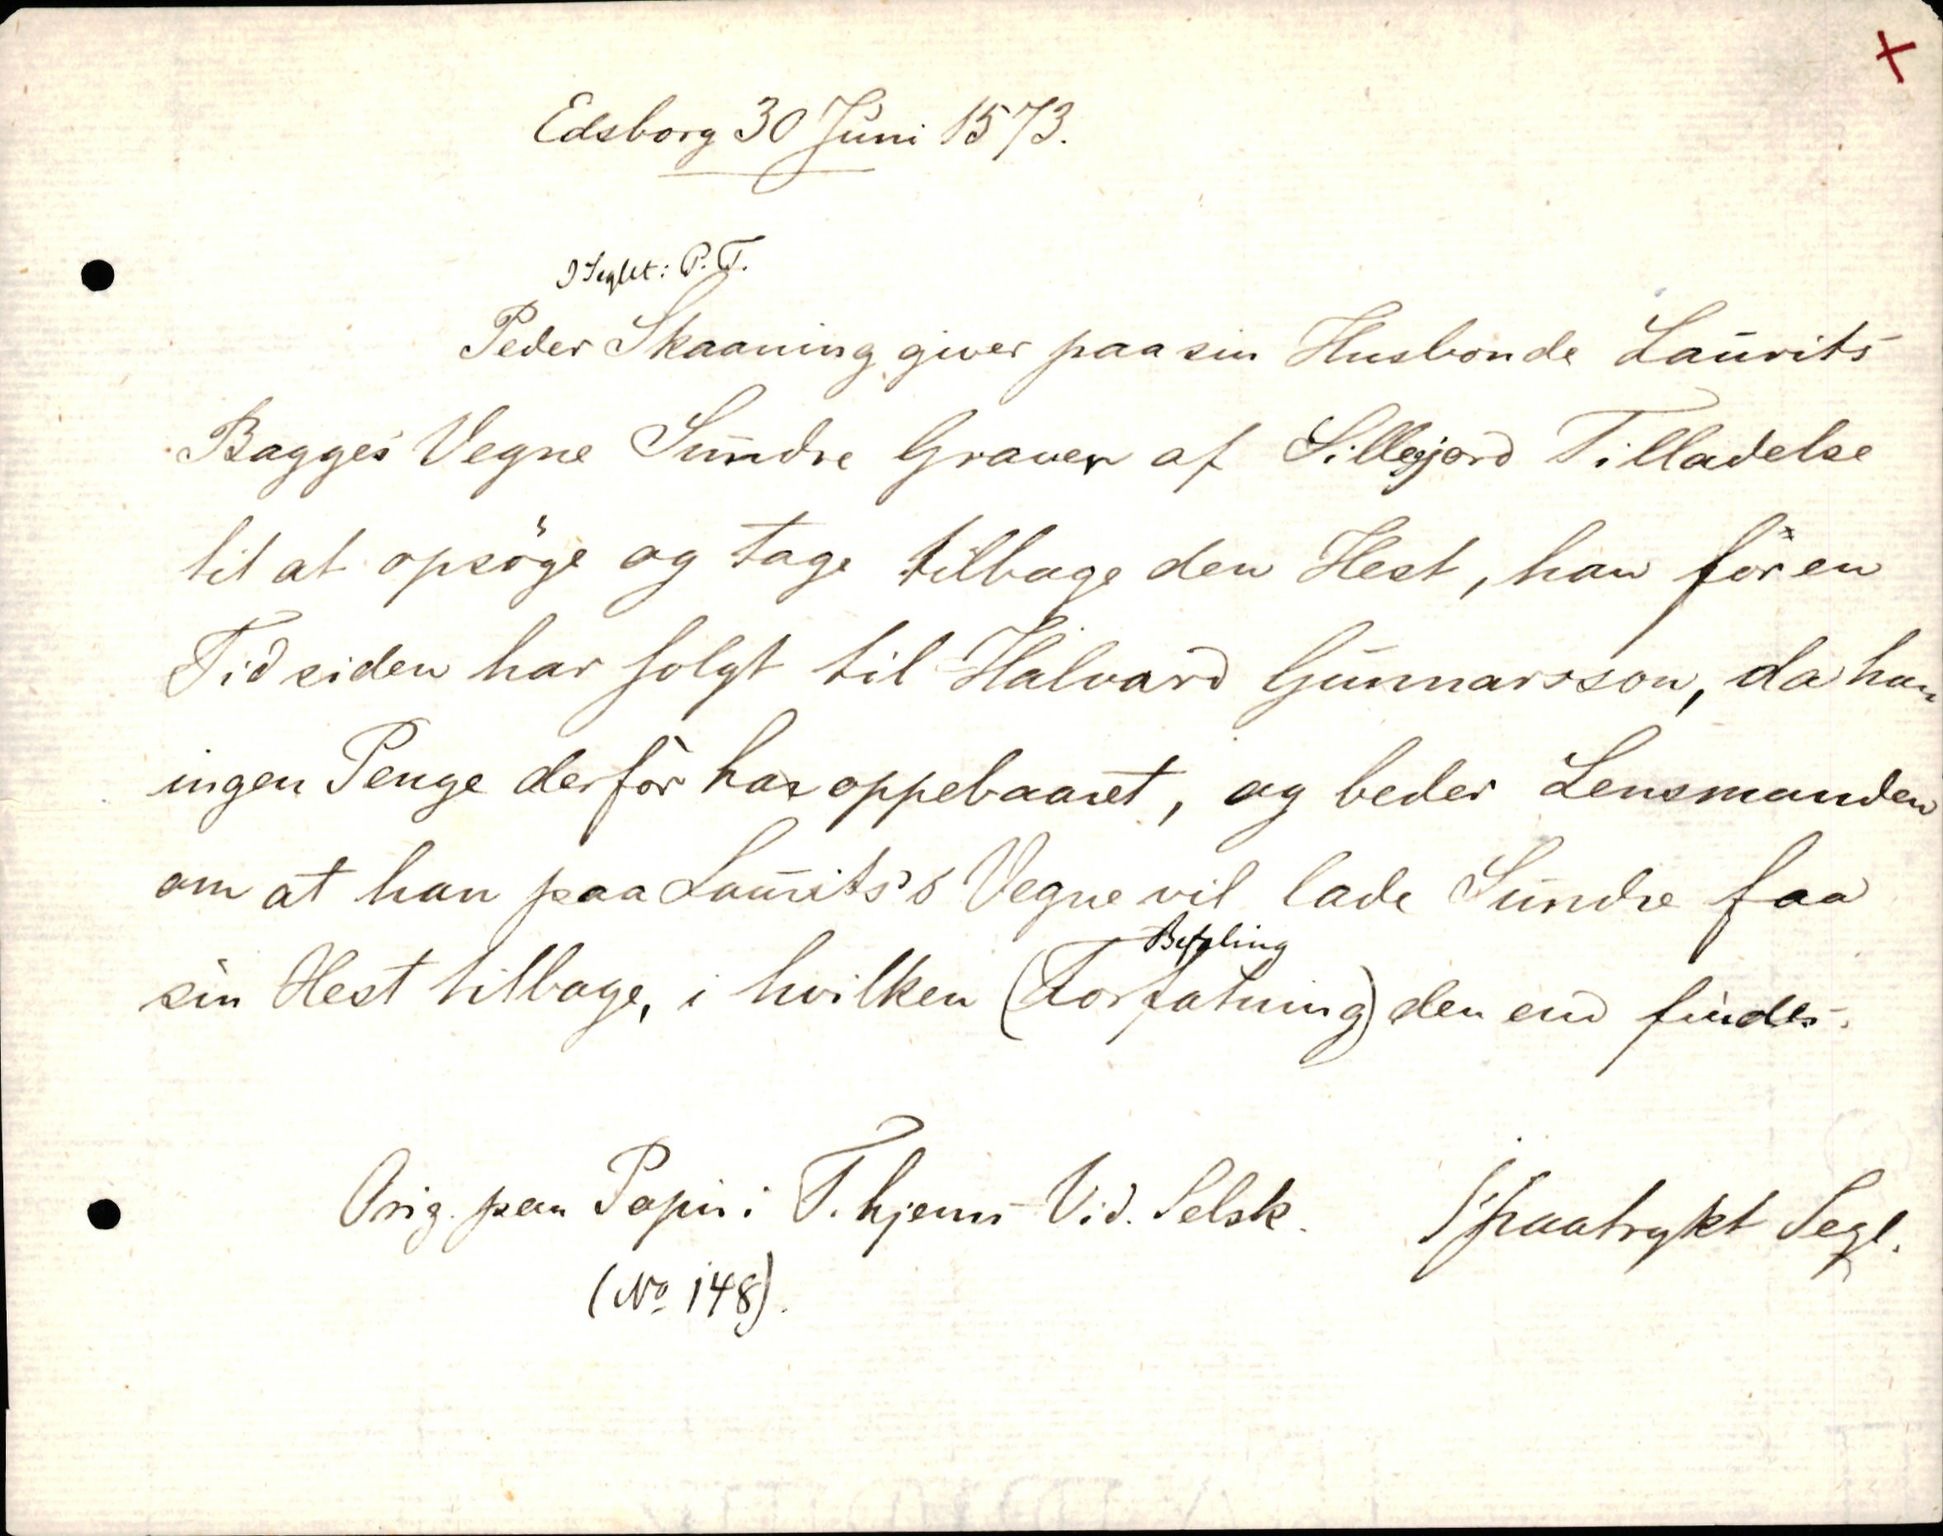 Edsborg 30 Juni 1573.
I Seglet: P. T.
Peder Skaaning giver paa sin Husbonde Laurits
Bagges Vegne Sundre Graver af Sillegjord Tilladelse
til at opsöge og tage tilbage den Hest, han för en
Tid siden har solgt til Halvard Gunnarsson, da han
ingen Penge derför har oppebaaret, og beder Lensmanden
om at han paa Laurits's Vegne vil lade Sundre faa
Befaling
sin Hest tilbage, i hvilken (Forfatning) den end findes.
Orig. paa Papir i T.hjems Vid. Selsk. 1 paatrykt Segl.
(No 148).